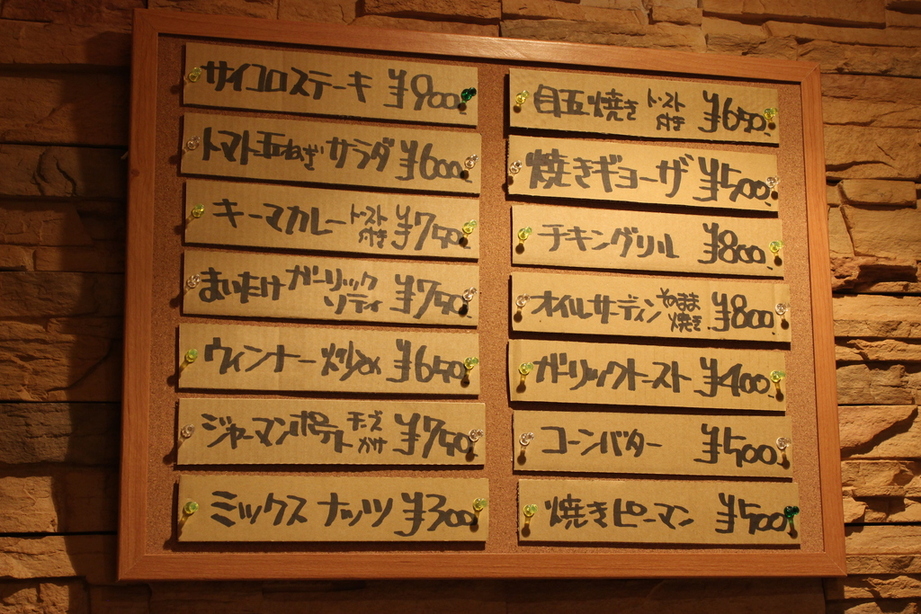 サイコロステーキ ¥900
トマト玉ねぎサラダ ¥600
キーマカレー トースト付き ¥750
まいたけ ガーリックソティ ¥750
ウィンナー炒め ¥650
ジャーマンポテト チーズがけ ¥750
ミックスナッツ ¥300
目玉焼き トースト付き ¥650
焼きギョーザ ¥500
チキングリル ¥800
オイルサーディン やまま焼き ¥800
ガーリックトースト ¥400
コーンバター ¥500
焼きピーマン ¥500